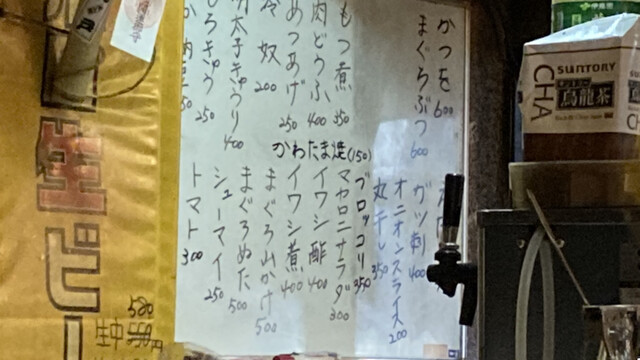 かつを 600
まぐろぶつ 600
もつ煮 350
肉どうふ 400
あつあげ 250
冷奴 200
明太子きゅうり 400
もろきゅう 250
かわたま焼(150)
ガツ刺 400
オニオンスライス 200
丸干し 350
ブロッコリ 350
マカロニサラダ 300
イワシ酢 400
イワシ煮 400
まぐろ山かけ 500
まぐろぬた 500
シューマイ 250
トマト 300
SUNTORY
烏龍茶
CHA
生中
580円